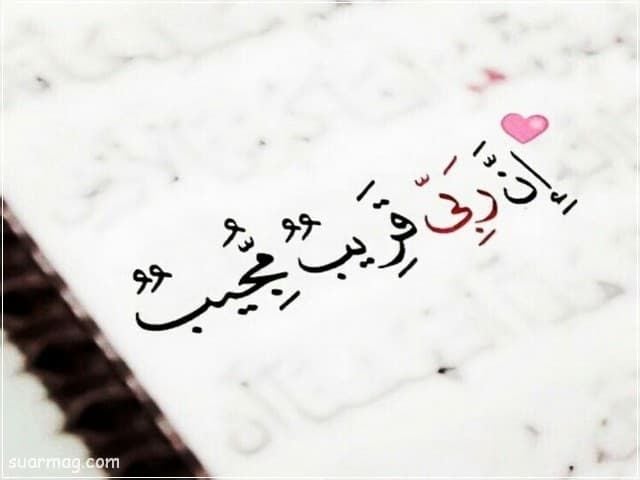 إِنَّ رَبِّى قَرِيبٌ مُّجِيبٌ
suarmag.com